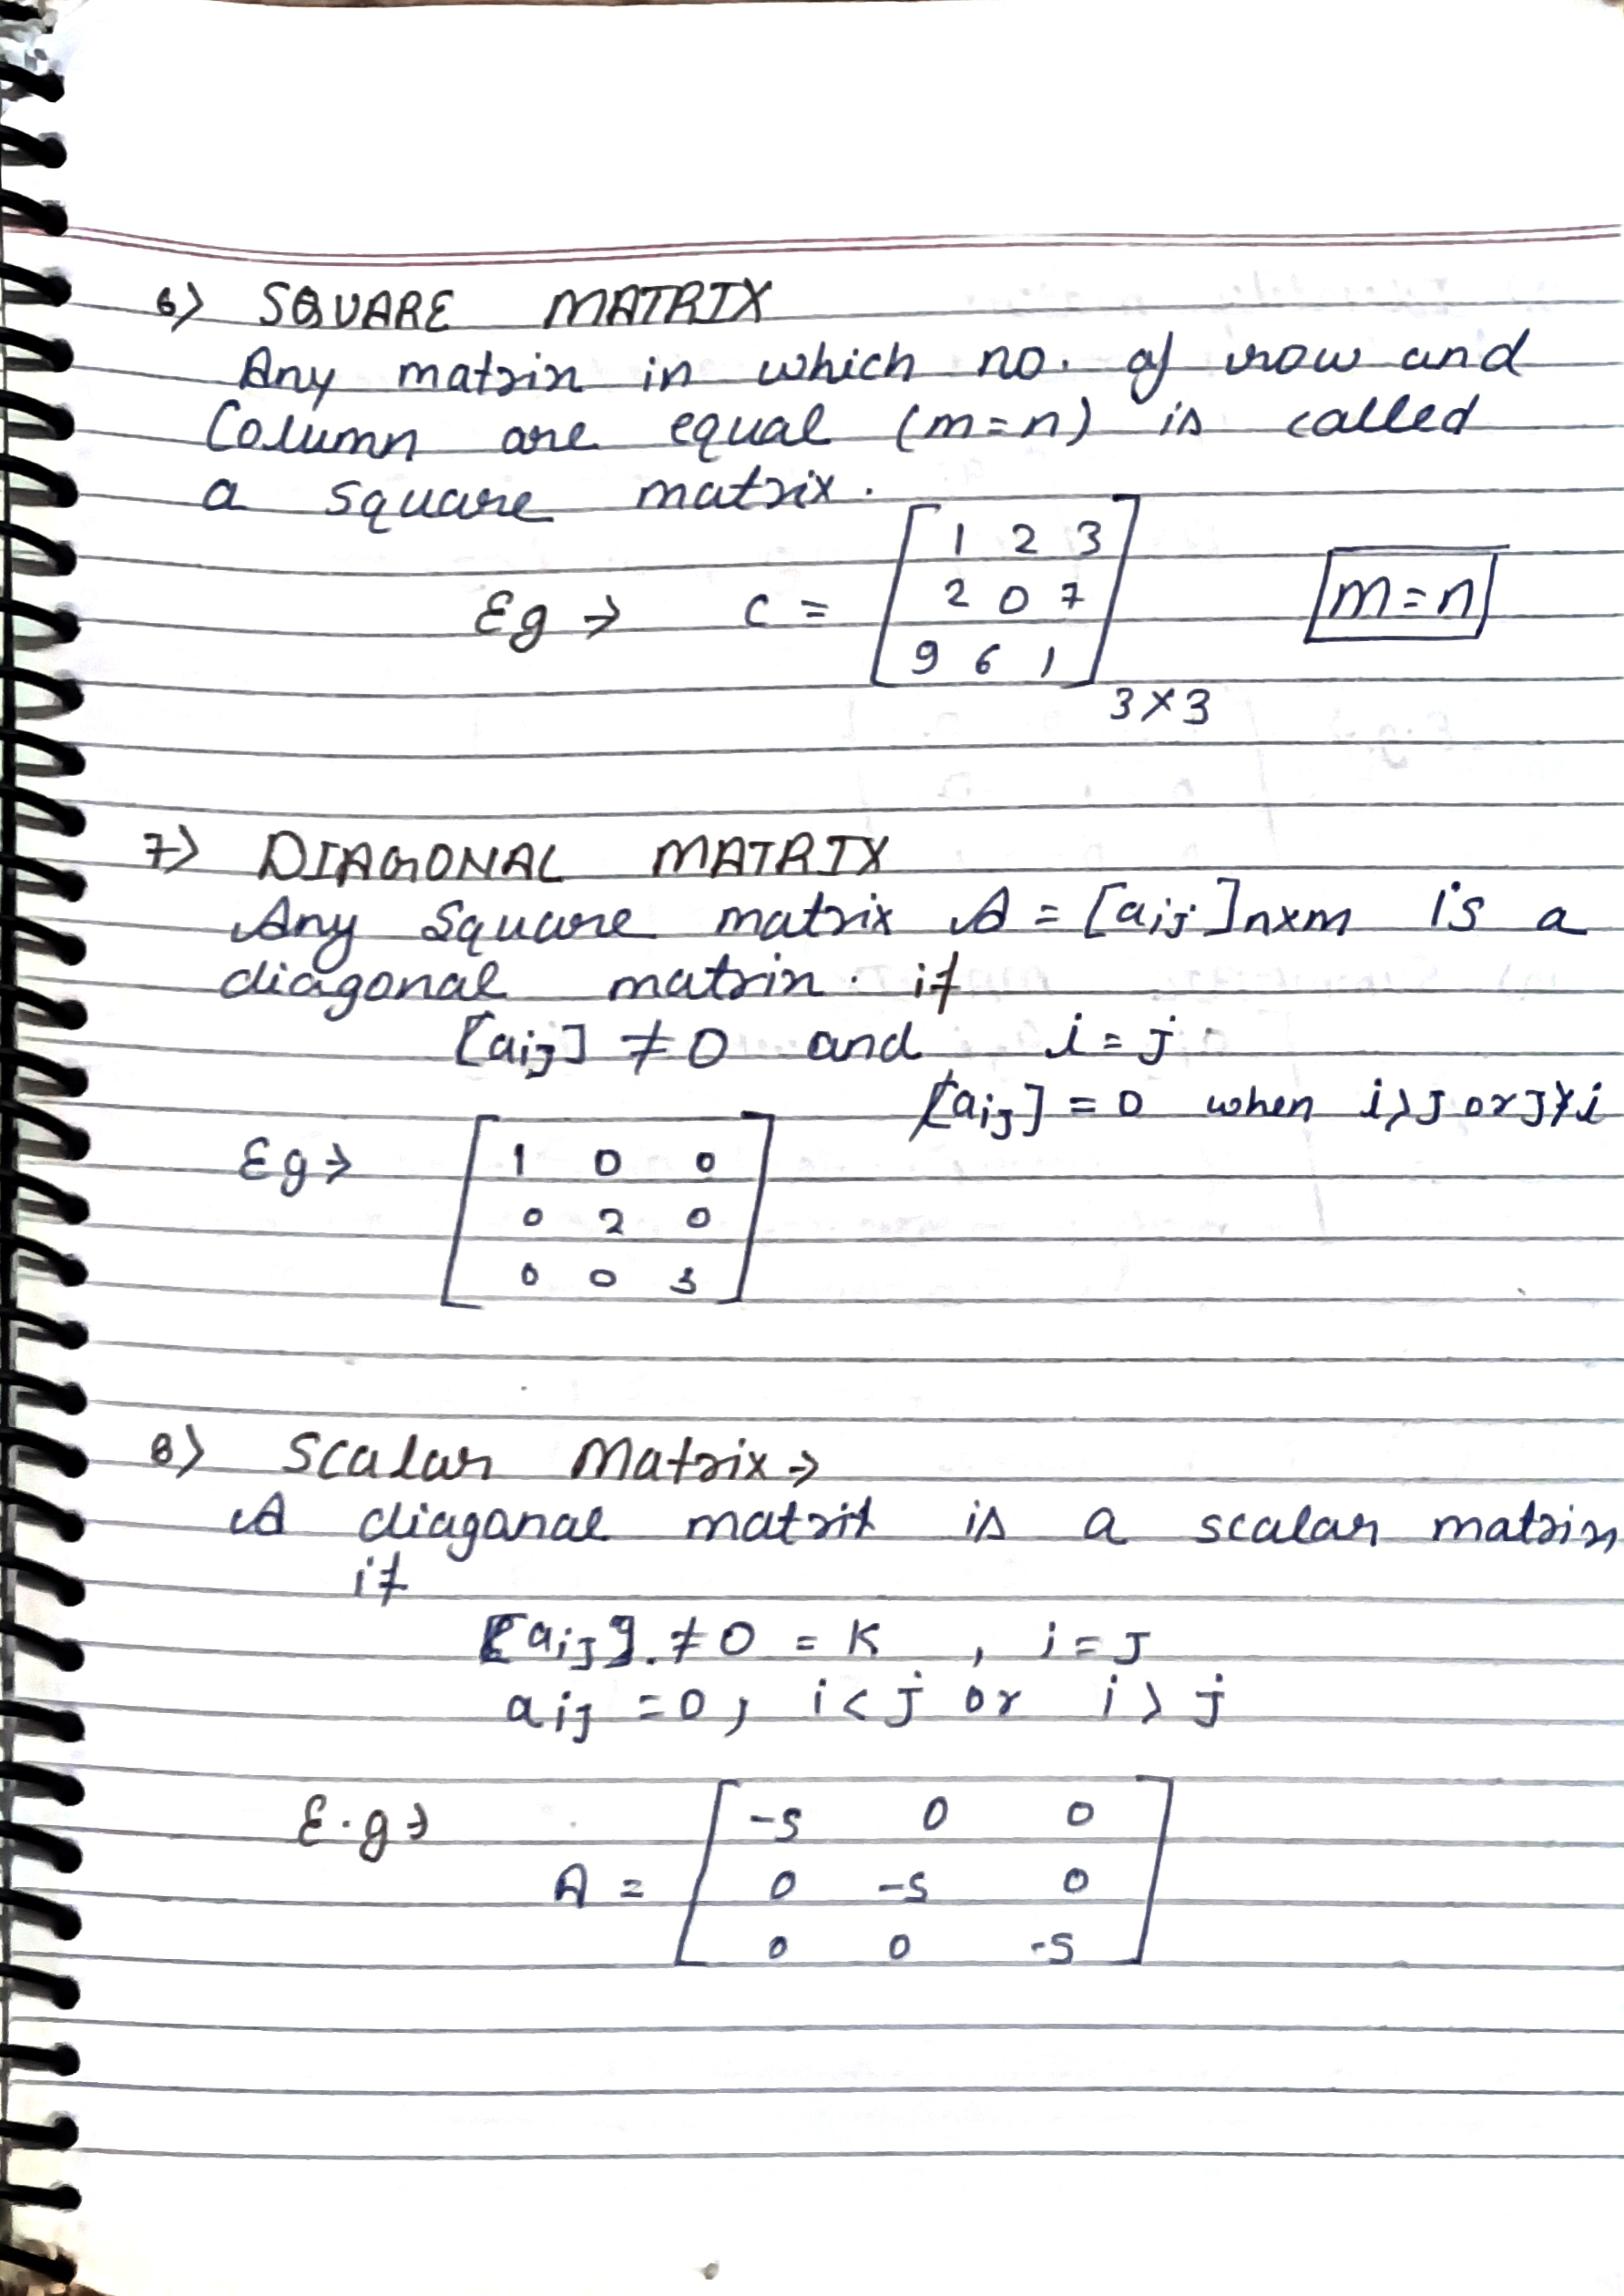 6) SQUARE MATRIX
Any matrix in which no. of row and
Column are equal (m=n) is called
a square matrix.
Eg → C = [1 2 3
2 0 7
9 6 1] 3×3
m=n
7) DIAGONAL MATRIX
Any Square matrix A = [aij]n×m is a
diagonal matrix. if
[aij] ≠ 0 and i = j
[aij] = 0 when i>j or j>i
Eg → [1 0 0
0 2 0
0 0 3]
8) Scalar Matrix →
A diagonal matrix is a scalar matrix
if
[aij] ≠ 0 = K , i = j
aij = 0, i < j or i > j
E.g →
A = [-5 0 0
0 -5 0
0 0 -5]